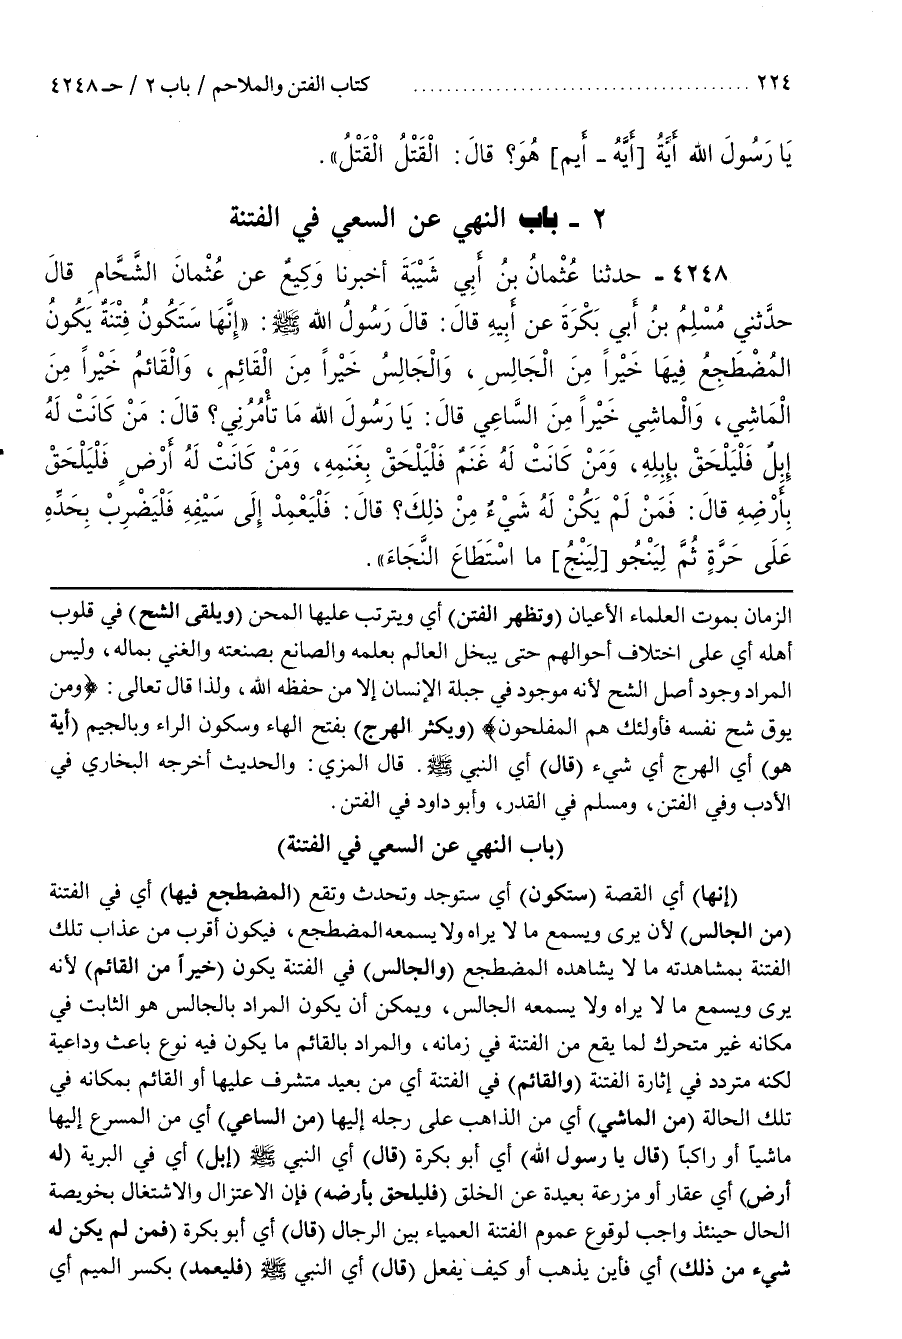 ٢٢٤ ........................................ كتاب الفتن والملاحم / باب ٢ / حـ ٤٢٤٨
يَا رَسُولَ الله أَيَّةُ [أَيَّهُ ـ أَيم] هُوَ؟ قالَ: الْقَتْلُ الْقَتْلُ».
٢ ـ باب النهي عن السعي في الفتنة
٤٢٤٨ ـ حدثنا عُثْمانُ بنُ أَبي شَيْبَةَ أخبرنا وَكِيعٌ عن عُثْمانَ الشَّحَّامِ قالَ
حدَّثني مُسْلِمُ بنُ أَبي بَكْرَةَ عن أَبِيهِ قالَ: قالَ رَسُولُ الله ﷺ: «إِنَّهَا سَتَكُونُ فِتْنَةٌ يَكُونُ
المُضْطَجِعُ فِيهَا خَيْراً مِنَ الْجَالِسِ، وَالْجَالِسُ خَيْراً مِنَ الْقَائِمِ، وَالْقَائمُ خَيْراً مِنَ
الْمَاشِي، وَالْماشِي خَيْراً مِنَ السَّاعِي قالَ: يَا رَسُولَ الله مَا تَأْمُرُنِي؟ قالَ: مَنْ كَانَتْ لَهُ
إِبِلٌ فَلْيَلْحَقْ بإِبِلِهِ، وَمَنْ كَانَتْ لَهُ غَنَمٌ فَلْيَلْحَقْ بِغَنَمِهِ، وَمَنْ كَانَتْ لَهُ أَرْضٍ فَلْيَلْحَقْ
بِأَرْضِهِ قالَ: فَمَنْ لَمْ يَكُنْ لَهُ شَيْءٌ مِنْ ذلِكَ؟ قالَ: فَلْيَعْمِدْ إِلَى سَيْفِهِ فَلْيَضْرِبْ بِحَدِّهِ
عَلَى حَرَّةٍ ثُمَّ لِيَنْجُو [لِيَنْجُ] ما اسْتَطَاعَ النَّجَاءَ».
الزمان بموت العلماء الأعيان (وتظهر الفتن) أي ويترتب عليها المحن (ويلقى الشح) في قلوب
أهله أي على اختلاف أحوالهم حتى يبخل العالم بعلمه والصانع بصنعته والغني بماله، وليس
المراد وجود أصل الشح لأنه موجود في جبلة الإنسان إلا من حفظه الله، ولذا قال تعالى: ﴿ومن
يوق شح نفسه فأولئك هم المفلحون﴾ (ويكثر الهرج) بفتح الهاء وسكون الراء وبالجيم (أية
هو) أي الهرج أي شيء (قال) أي النبي ﷺ. قال المزي: والحديث أخرجه البخاري في
الأدب وفي الفتن، ومسلم في القدر، وأبو داود في الفتن.
(باب النهي عن السعي في الفتنة)
(إنها) أي القصة (ستكون) أي ستوجد وتحدث وتقع (المضطجع فيها) أي في الفتنة
(من الجالس) لأن يرى ويسمع ما لا يراه ولا يسمعه المضطجع، فيكون أقرب من عذاب تلك
الفتنة بمشاهدته ما لا يشاهده المضطجع (والجالس) في الفتنة يكون (خيراً من القائم) لأنه
يرى ويسمع ما لا يراه ولا يسمعه الجالس، ويمكن أن يكون المراد بالجالس هو الثابت في
مكانه غير متحرك لما يقع من الفتنة في زمانه، والمراد بالقائم ما يكون فيه نوع باعث وداعية
لكنه متردد في إثارة الفتنة (والقائم) في الفتنة أي من بعيد متشرف عليها أو القائم بمكانه في
تلك الحالة (من الماشي) أي من الذاهب على رجله إليها (من الساعي) أي من المسرع إليها
ماشياً أو راكباً (قال يا رسول الله) أي أبو بكرة (قال) أي النبي ﷺ (إبل) أي في البرية (له
أرض) أي عقار أو مزرعة بعيدة عن الخلق (فليلحق بأرضه) فإن الاعتزال والاشتغال بخويصة
الحال حينئذ واجب لوقوع عموم الفتنة العمياء بين الرجال (قال) أي أبو بكرة (فمن لم يكن له
شيء من ذلك) أي فأين يذهب أو كيف يفعل (قال) أي النبي ﷺ (فليعمد) بكسر الميم أي